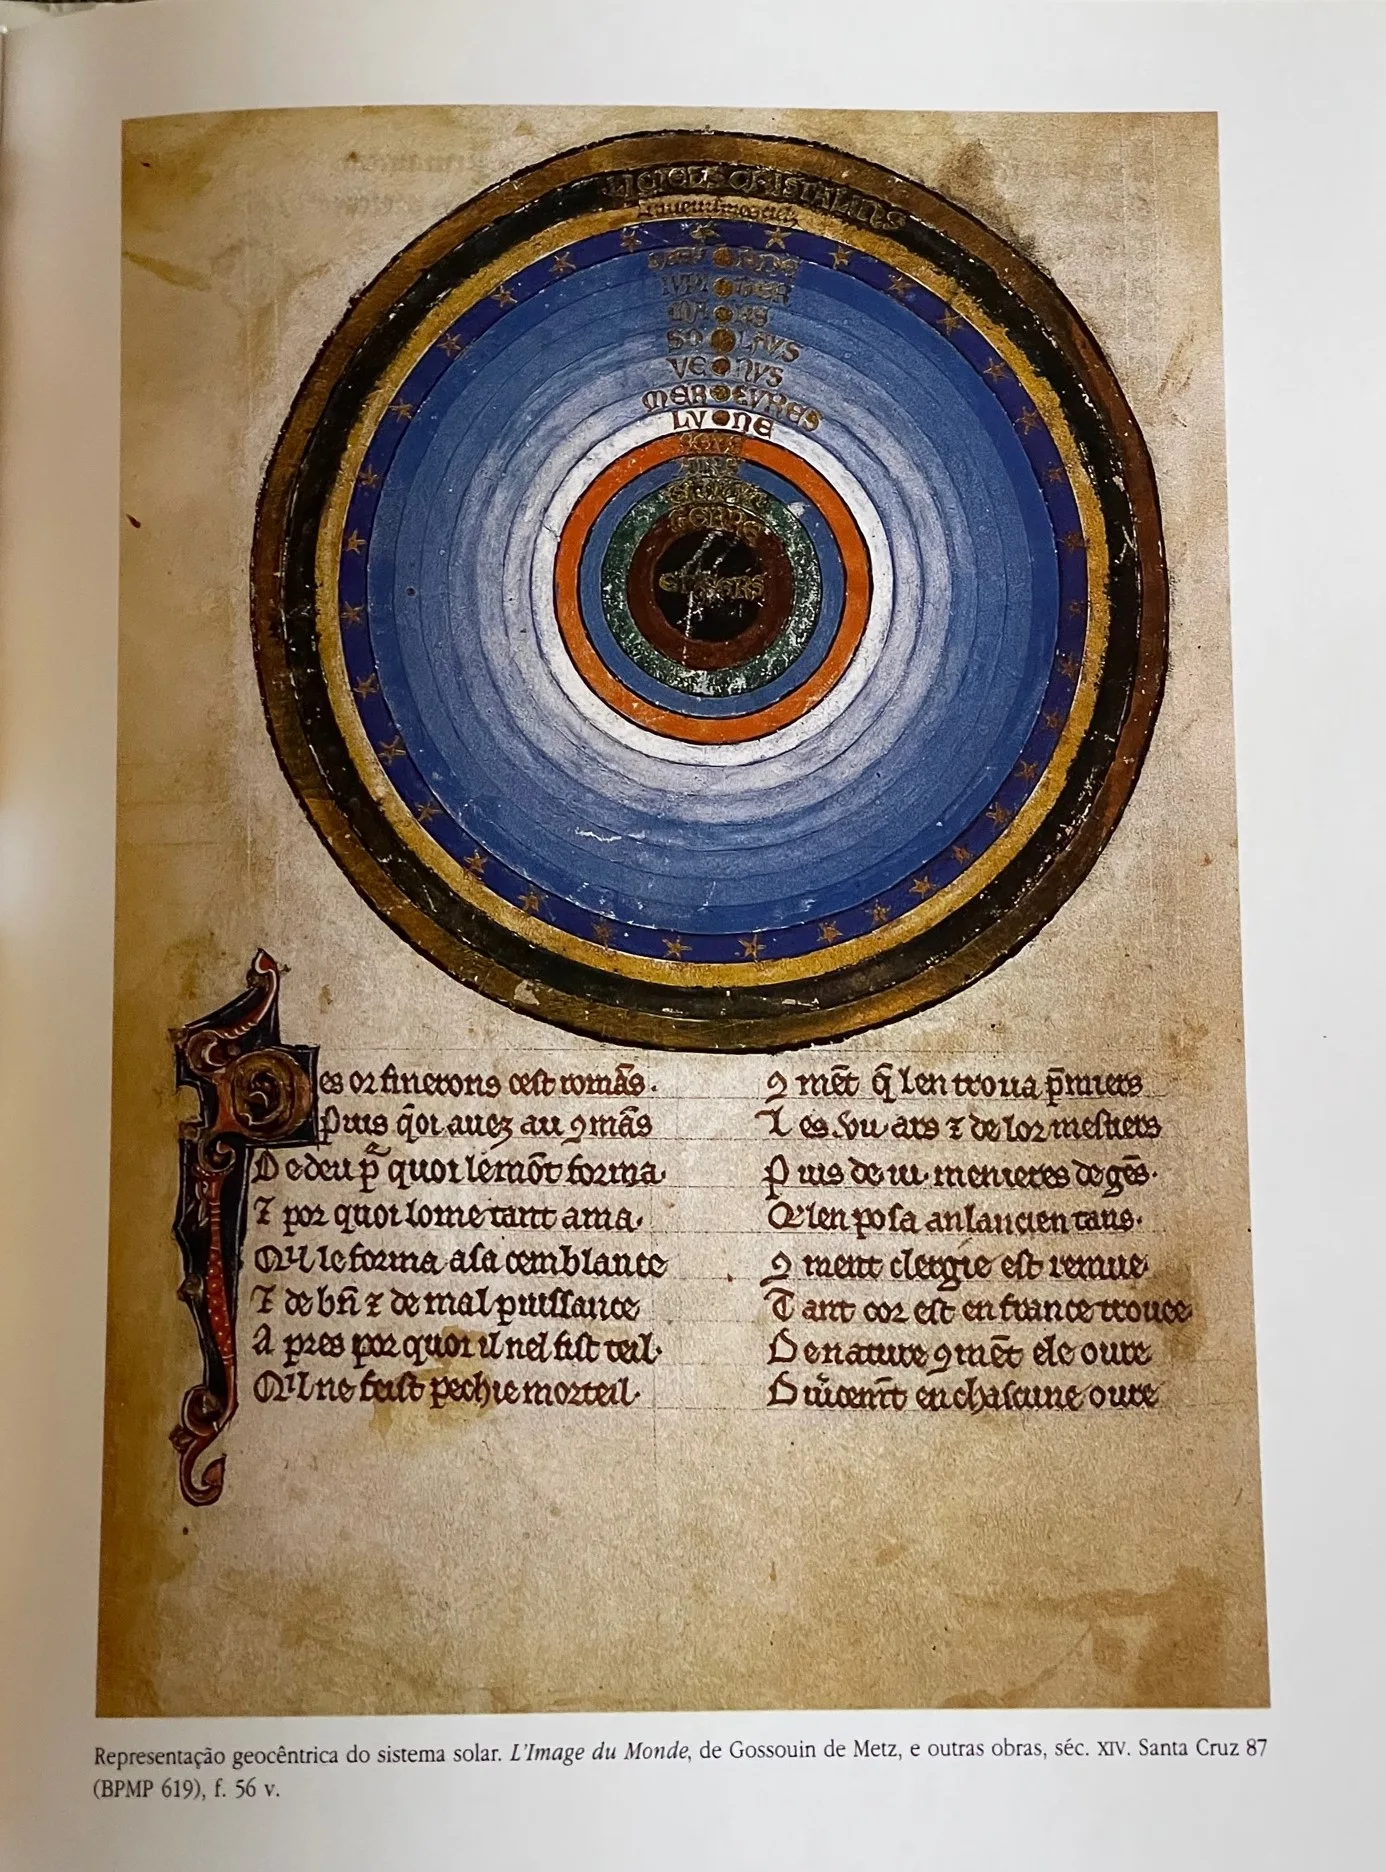 LI CIELS CRISTALINS
SAT ORNE
IVPI TER
MA RS
SO LAUS
VE NVS
MER CVRES
LV ONE
FEVS
AIRS
TERRE
ENFERS
Des or finerons cest romās.
Puis q̄ oi auez au ꝯmās
De deu p̄ quoi le mōt forma.
⁊ por quoi lome tant ama.
Qil le forma a sa cemblance
⁊ de bn̄ ⁊ de mal puissance
Apres por quoi il nel fist teil.
Qil ne feist pechie morteil.
ꝯ mēt q̄ len troua p̄miers
Les .vii. ars ⁊ de lor mestiers
Puis de .iii. menieres de gēs.
Qe len posa an lancien tans.
ꝯ ment clergie est remue
Tant cor est en france trouee
De nature ꝯmēt ele oure
Diuerm̄t en chascune oure
Representação geocêntrica do sistema solar. L'Image du Monde, de Gossouin de Metz, e outras obras, séc. XIV. Santa Cruz 87
(BPMP 619), f. 56 v.